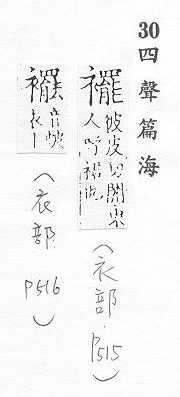 30 四聲篇海
襬 彼皮切關東
人呼裙也
(衣部 P515)
音
衣
(衣部 P516)